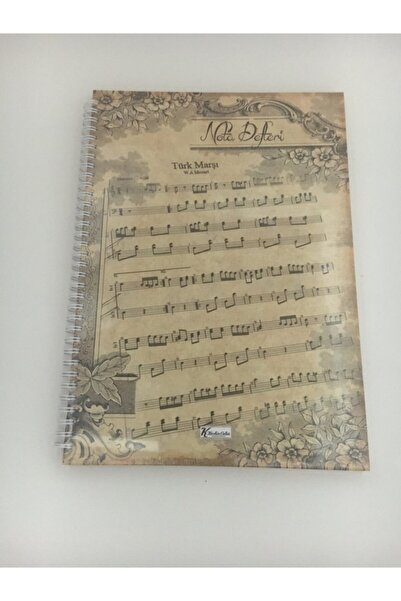 Nota Defteri
Türk Marşı
W.A Mozart